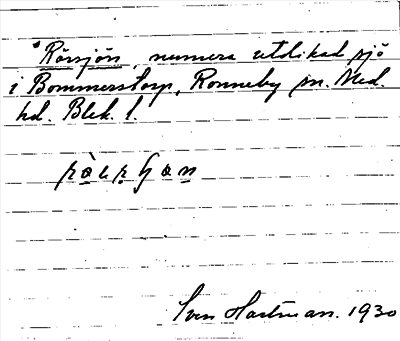 *Rörsjön, numera utdikad sjö
i Bommerstorp, Ronneby sn. Med.
hd. Blek. l.
Sven Hartman. 1930